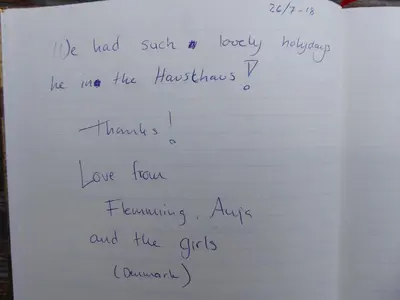 26/7-18
We had such a lovely holydays
he in the Hausthaus!
Thanks!
Love from
Flemming, Anja
and the girls
(Denmark)